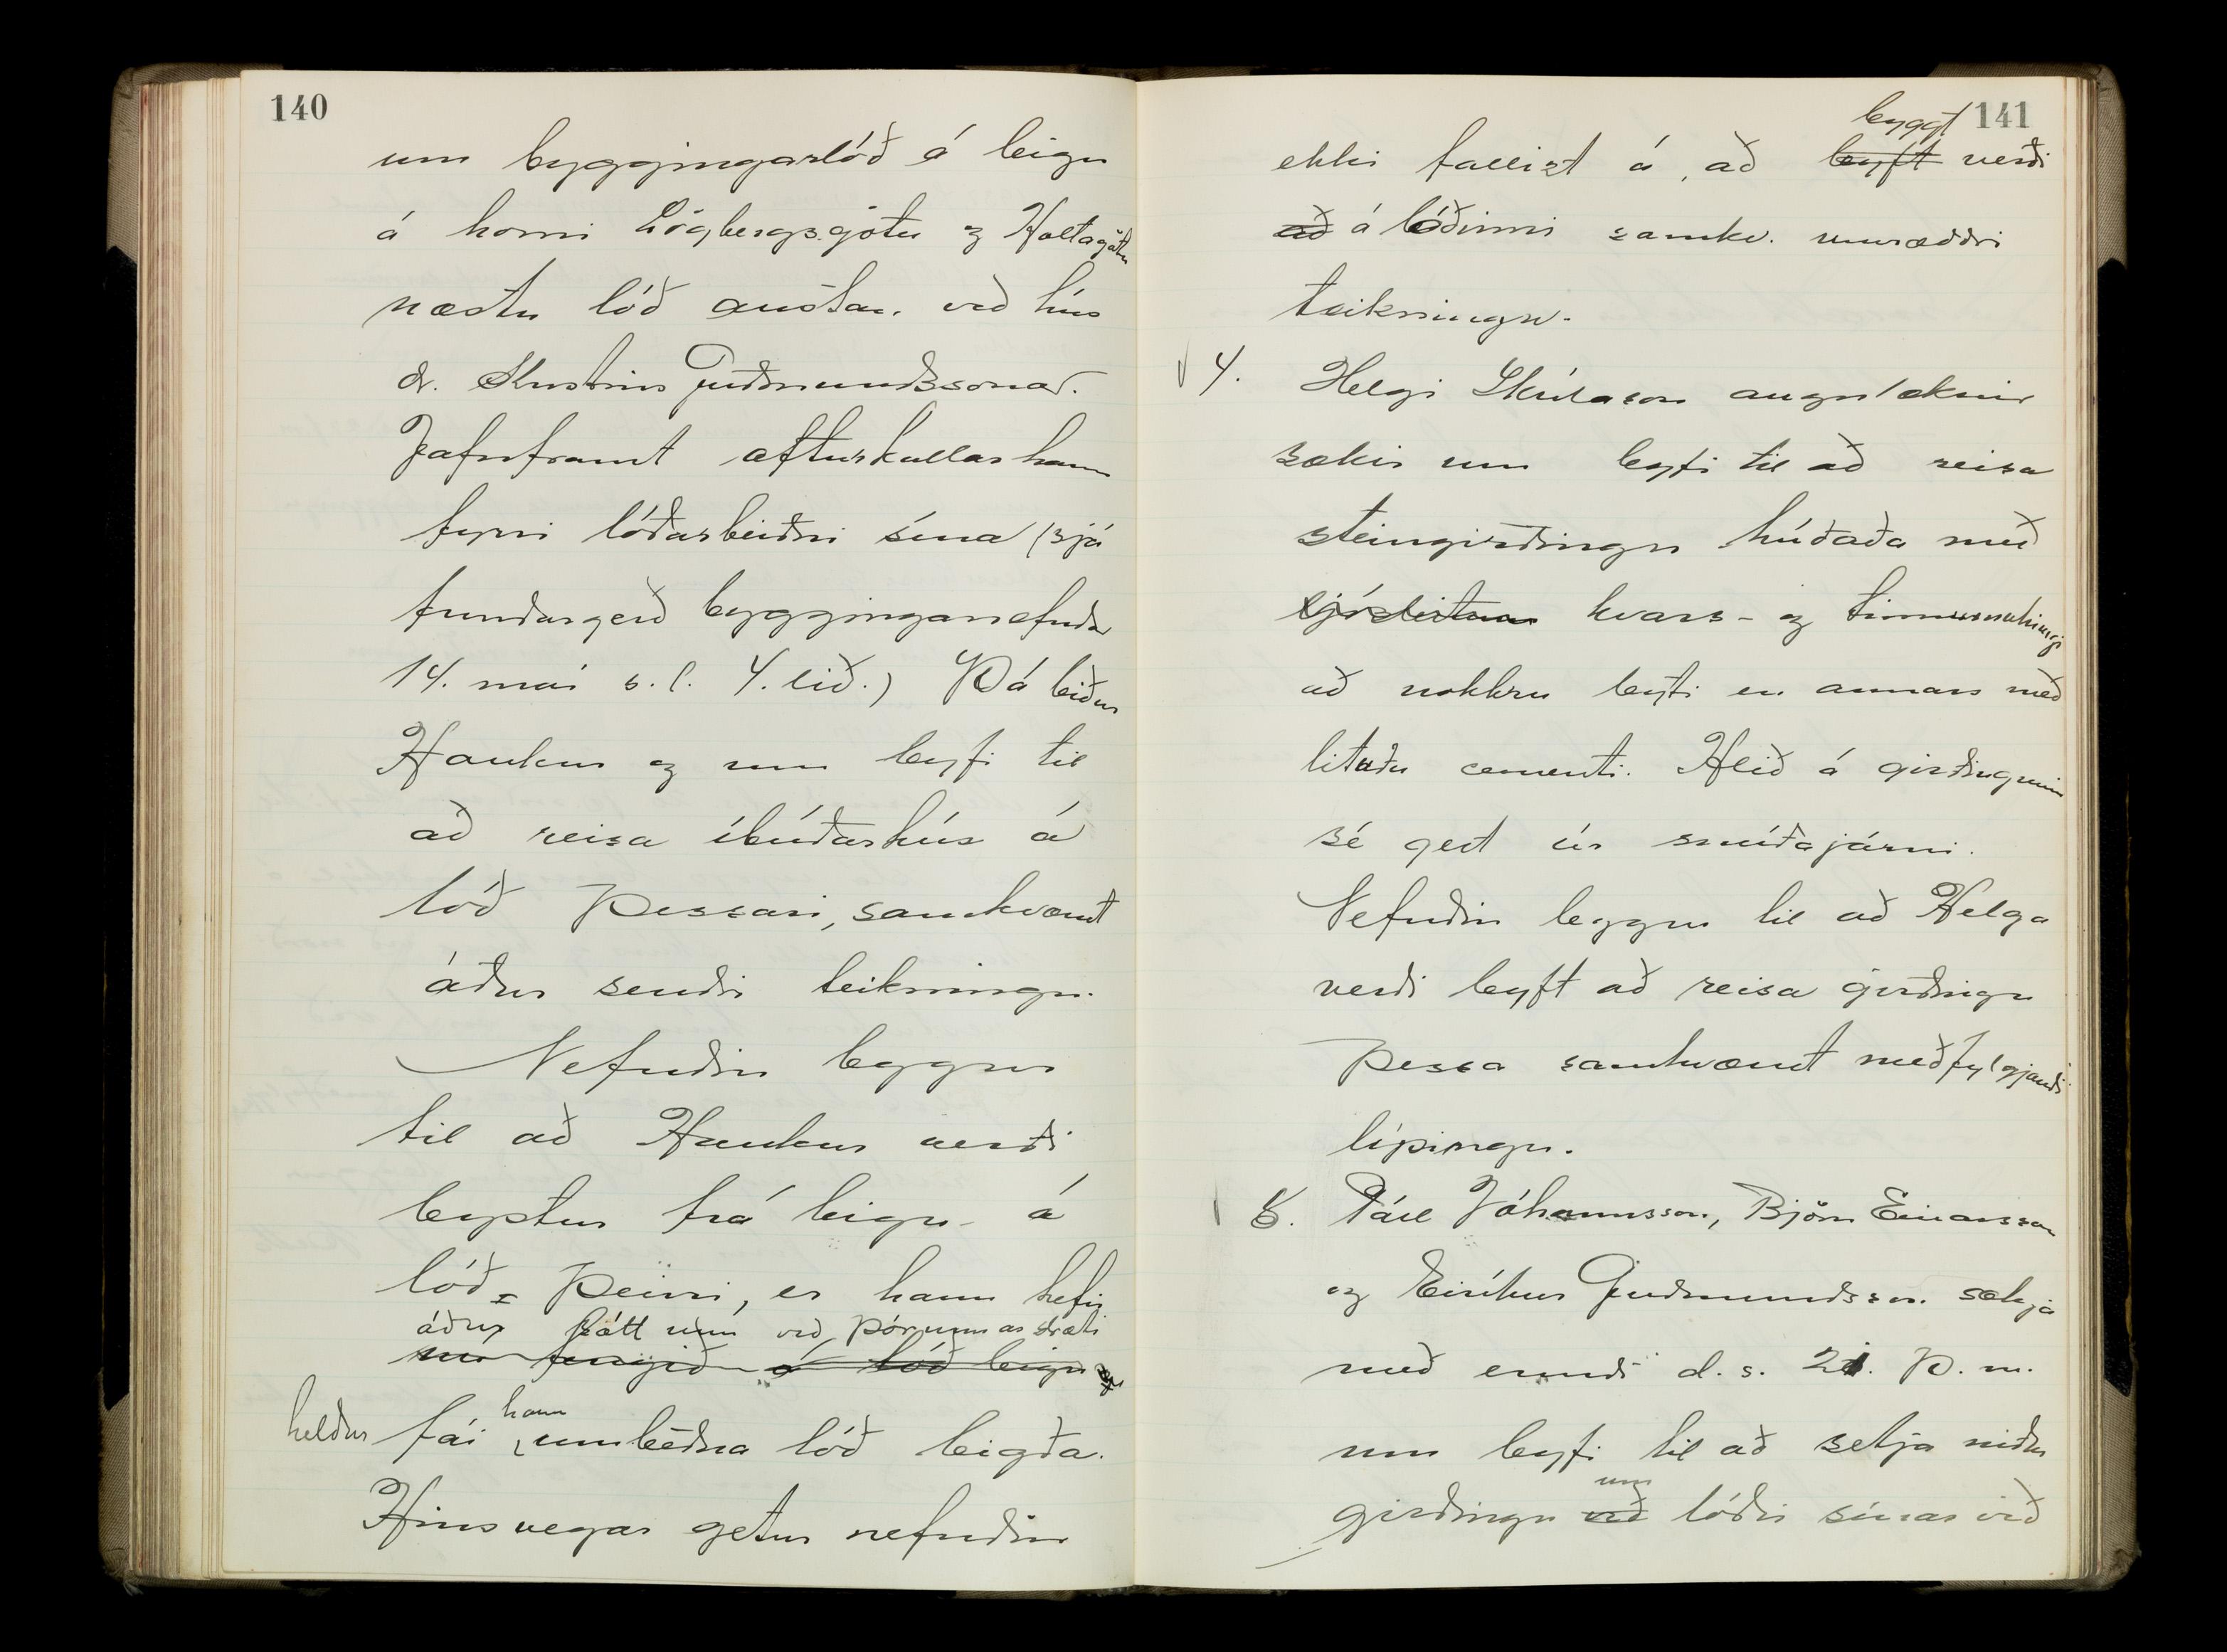 140
um byggingarlóð á leigu
á horni Lögbergsgötu og Holtagötu
næstu lóð austan við hús
dr. Kristins Guðmundssonar.
Jafnframt afturkallar hann
fyrri lóðarbeiðni sína (sjá
fundargerð bygginganefndar
14. maí s.l. 4. lið.) Þá biður
Haukur og um leyfi til
að reisa íbúðarhús á
lóð þessari, samkvæmt
áður sendri teikningu.
Nefndin leggur
til að Haukur verði
leystur frá leigu á
lóð þeirri, er hann hefir
áður sótt um við Þórunnarstræti
nú fengið á lóð leigu
heldur fái hann umbeðna lóð leigða.
Hinsvegar getur nefndin
141
byggt
ekki fallizt á, að leyft verði
að á lóðinni samkv. umræddri
teikningu.
4. Helgi Skúlason augnlæknir
sækir um leyfi til að reisa
steingirðingu húðaða með
kvars- og tinnumulningi
að nokkru leyti en annars með
lituðu cementi. Hlið á girðingunni
sé gert úr smíðajárni.
Nefndin leggur til að Helga
verði leyft að reisa girðingu
þessa samkvæmt meðfylgjandi
lýsingu.
5. Páll Jóhannsson, Björn Einarsson
og Eiríkur Guðmundsson sækja
með erindi d.s. 21. þ.m.
um leyfi til að setja niður
um
girðingu við lóðir sínar við